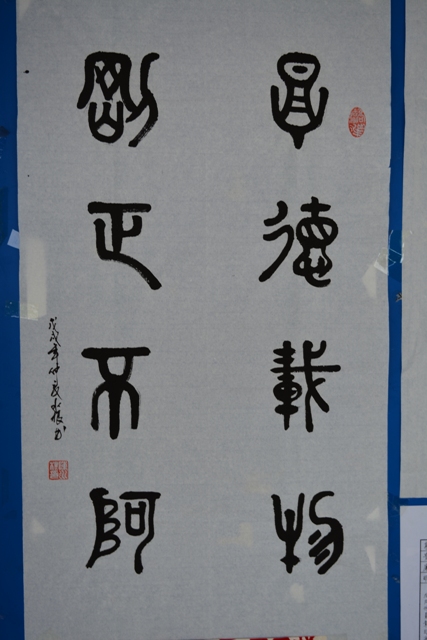 厚德載物
剛正不阿
戊戌年仲夏